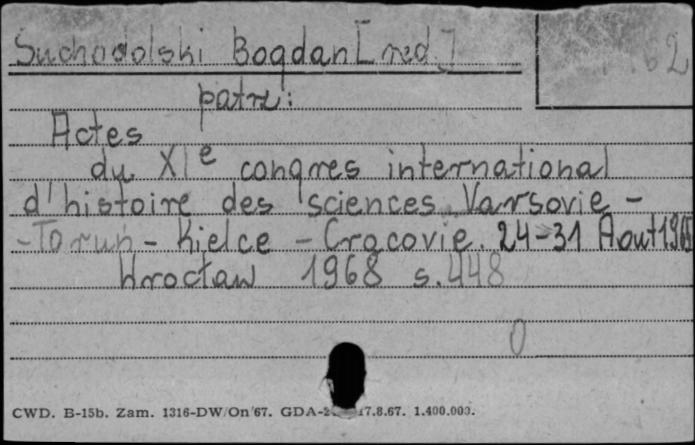 Suchodolski Bogdan [red]
62
patrz:
Actes
du XIe congres international
d'histoire des sciences Varsovie -
- Toruń - Kielce - Cracovie. 24-31 Aout 1965
Wrocław 1968 s. 448
0
CWD. B-15b. Zam. 1316-DW/On/67. GDA- 17.8.67. 1.400.000.